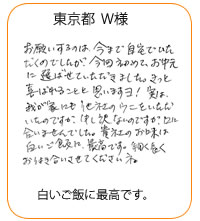 東京都 W様
お願いするのは、今まで自宅でいた
だくのでしたが、今回初めて、お中元
に選ばせていただきました。きっと
喜ばれることと思いますヨ! 実は、
我が家にも他社のウニをいただ
いたのですが、申し訳ないのですが、口に
合いませんでした。貴社のお味は
白いご飯に、最高です。細く長く
おつき合いさせてくださいネ。
白いご飯に最高です。